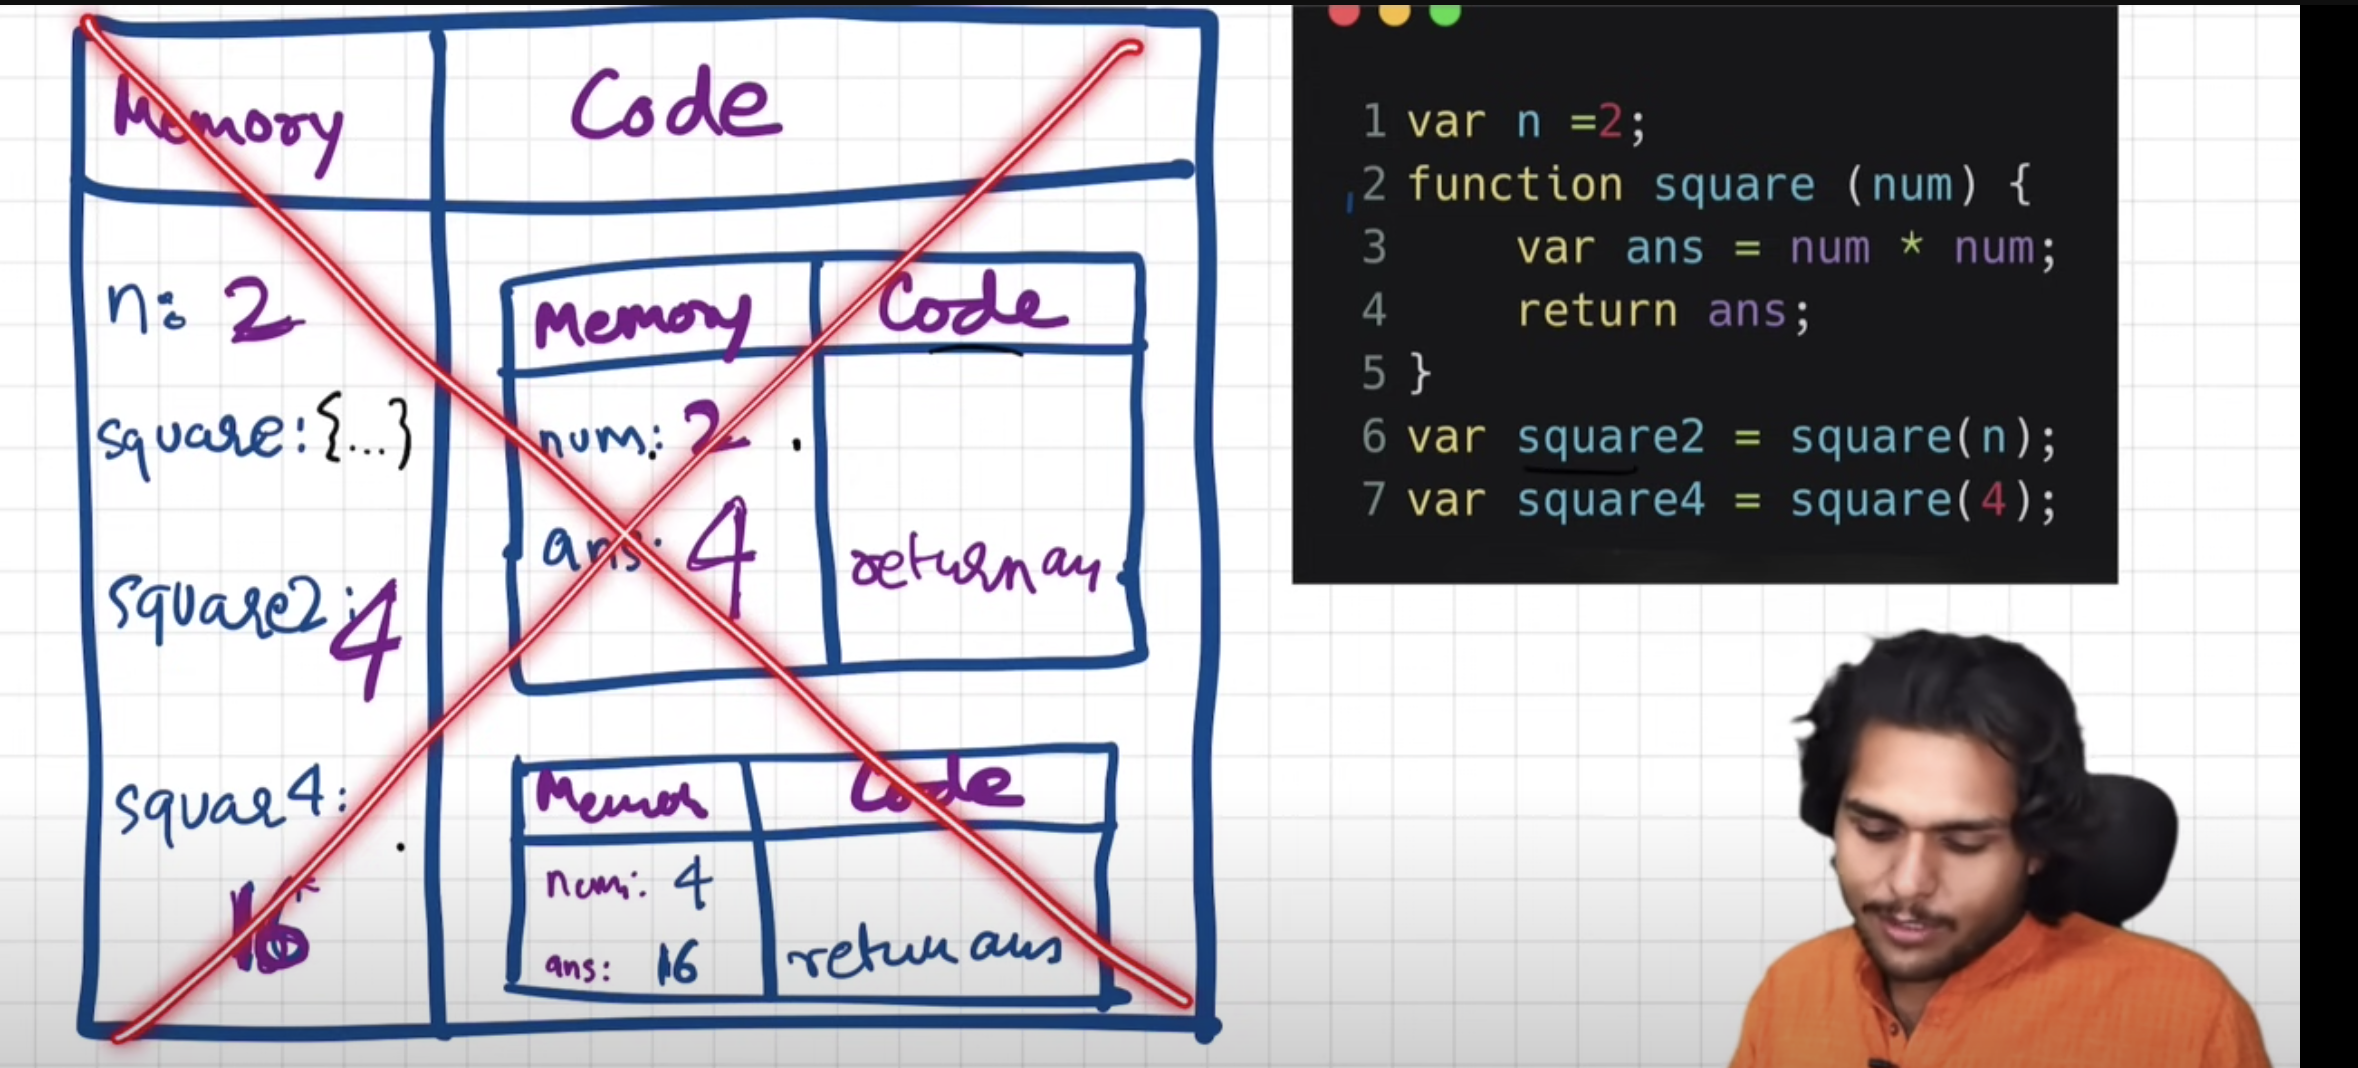 Memory
Code
n: 2
square: {...}
square2: 4
squar4:
16
Memory
Code
num: 2
ans: 4
return an
Memor
Code
num: 4
ans: 16
return ans
1 var n =2;
2 function square (num) {
3 var ans = num * num;
4 return ans;
5 }
6 var square2 = square(n);
7 var square4 = square(4);